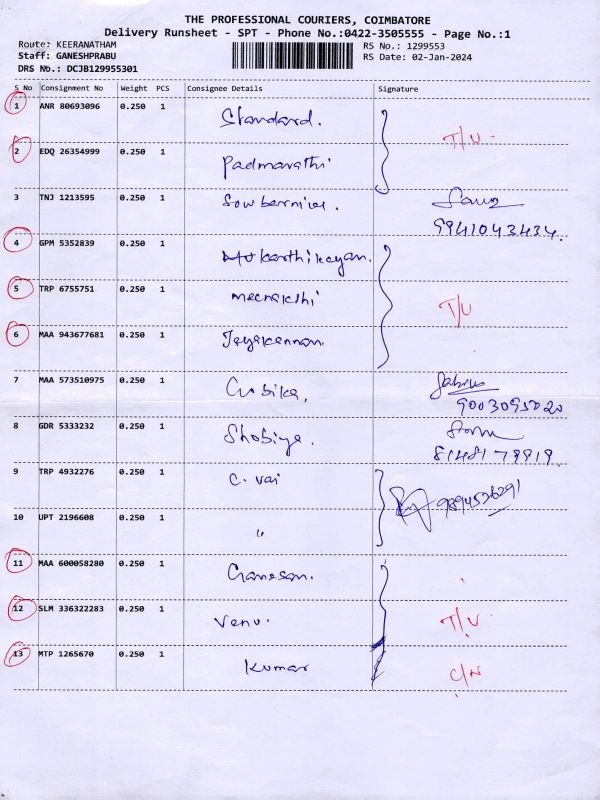 THE PROFESSIONAL COURIERS, COIMBATORE
Delivery Runsheet - SPT - Phone No.:0422-3505555 - Page No.:1
Route: KEERANATHAM
RS No.: 1299553
Staff: GANESHPRABU
RS Date: 02-Jan-2024
DRS No.: DCJB129955301
S No Consignment No Weight PCS Consignee Details Signature
1 ANR 80693096 0.250 1 Standard.
T/U
2 EDQ 26354999 0.250 1 Padmavathi
3 TNJ 1213595 0.250 1
9941043434.
4 GPM 5352839 0.250 1
5 TRP 6755751 0.250 1 meenakshi T/U
6 MAA 943677681 0.250 1 Jayakannan.
7 MAA 573510975 0.250 1
9003095020
8 GDR 5333232 0.250 1 Shobiya.
9 TRP 4932276 0.250 1 C. vai
9894526291
10 UPT 2196608 0.250 1 "
11 MAA 600058280 0.250 1 Ganesan.
12 SLM 336322283 0.250 1 Venu. T/U
13 MTP 1265670 0.250 1 Kumar C/N